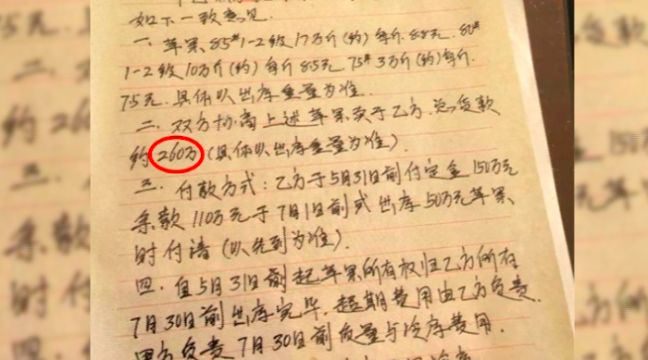 如下一致意见.
一、苹果85#1-2级17万斤(约)每斤8.8元.80#
1-2级10万斤(约)每斤8.5元.75#3万斤(约)每斤
7.5元.具体以出库重量为准.
二、双方协商上述苹果卖于乙方.总货款
约260万(具体以出库重量为准).
三、付款方式:乙方于5月31日前付定金150万元
余款110万元于7月1日前或出库50万元苹果
时付清(以先到为准).
四、自5月31日前起苹果所有权归乙方所有
7月30日前出库完毕.超期费用由乙方负责.
甲方负责7月30日前质量与冷库费用.